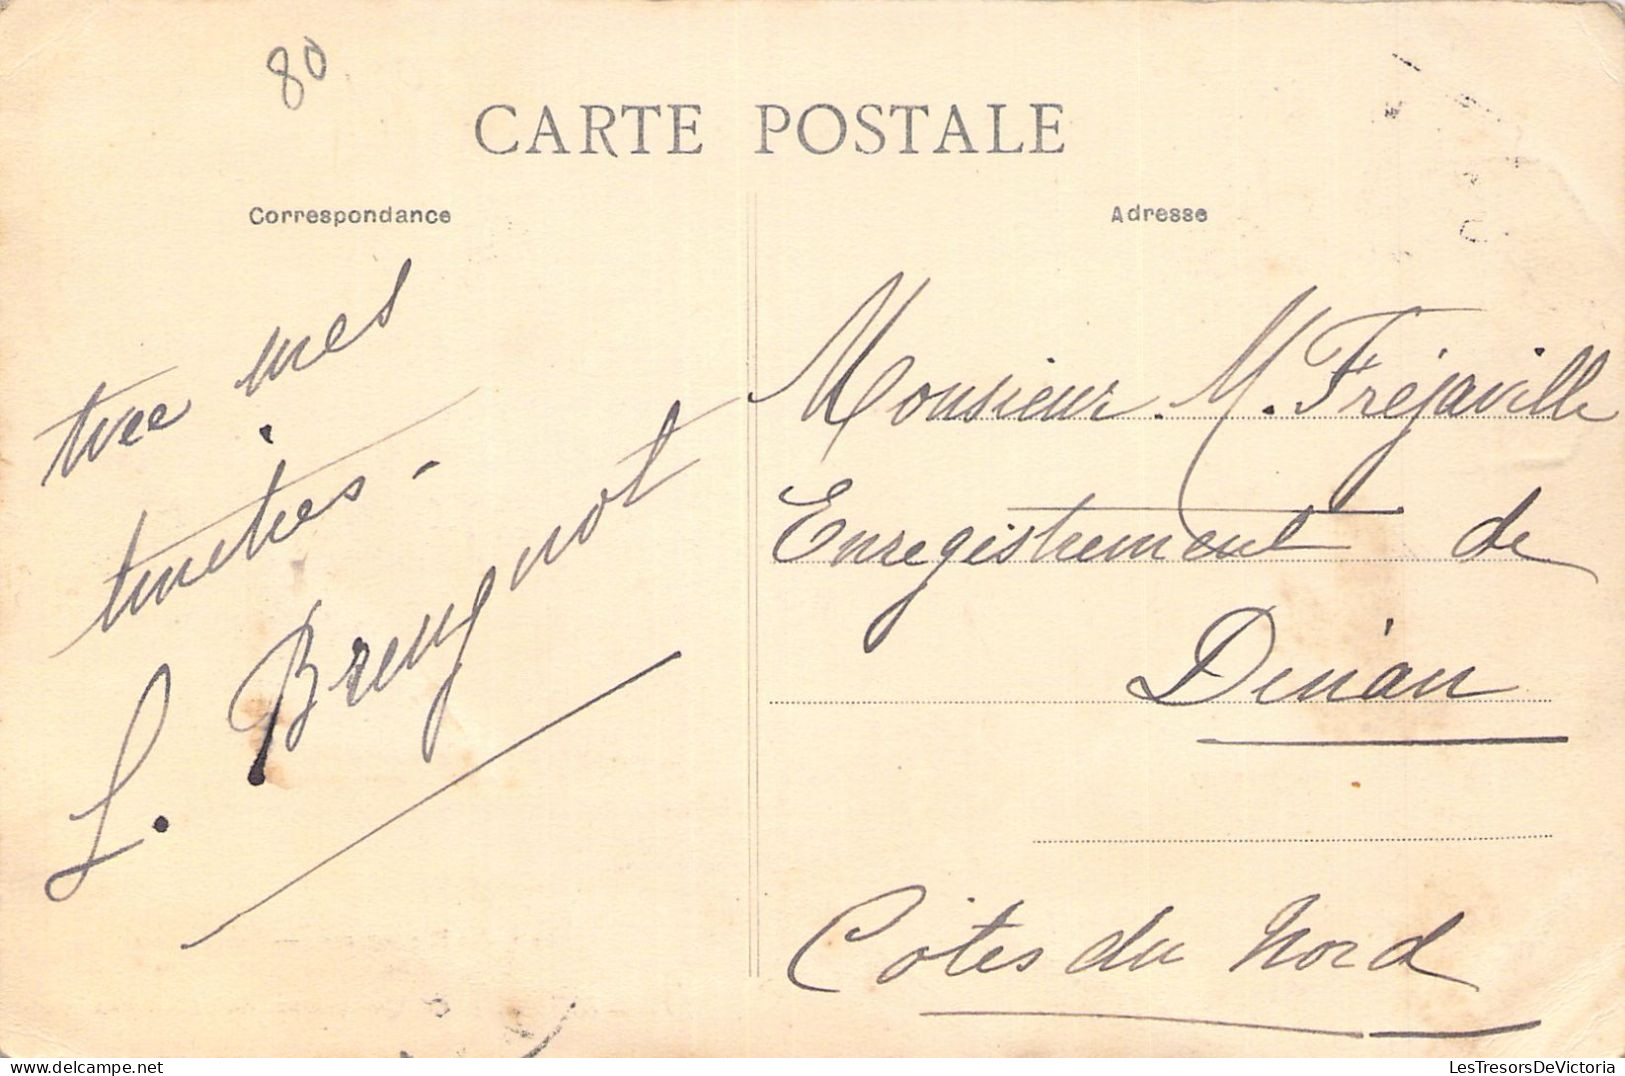 80
CARTE POSTALE
Correspondance
mes
L. Breugnot
Adresse
Monsieur M. Fréjaville
Enregistrement de
Dinan
Côtes du Nord
LesTresorsDeVictoria